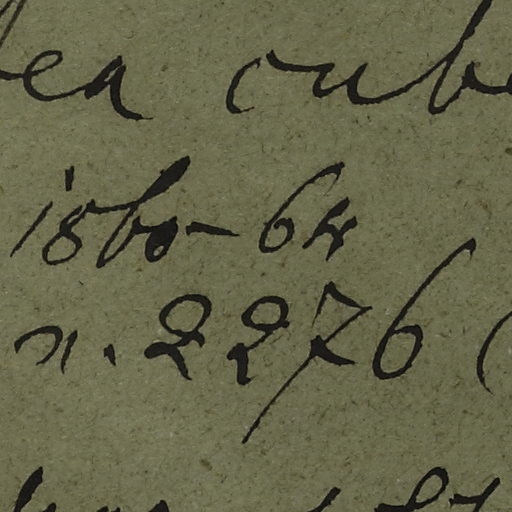 ea cub
1860-64
n. 2276 (